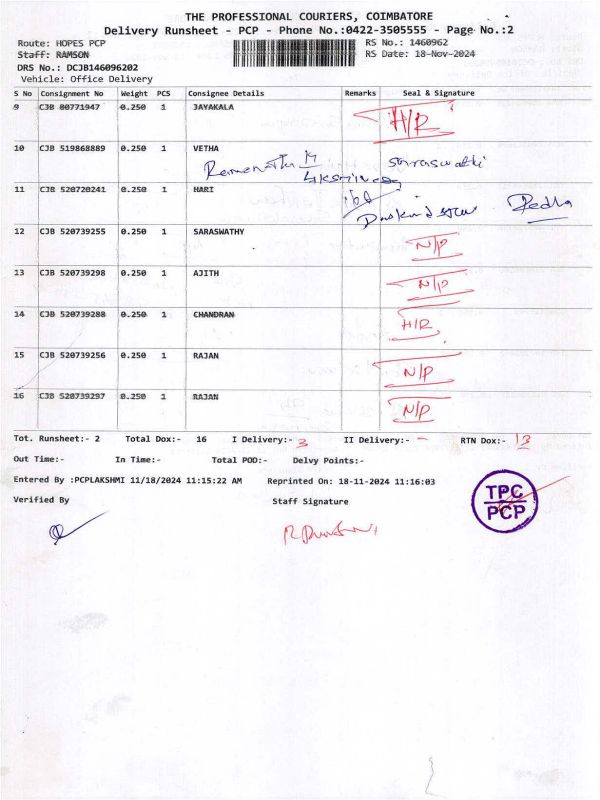 THE PROFESSIONAL COURIERS, COIMBATORE
Delivery Runsheet - PCP - Phone No.:0422-3505555 - Page No.:2
Route: HOPES PCP RS No.: 1460962
Staff: RAMSON RS Date: 18-Nov-2024
DRS No.: DCJB146096202
Vehicle: Office Delivery
S No Consignment No Weight PCS Consignee Details Remarks Seal & Signature
9 CJB 80771947 0.250 1 JAYAKALA H/R
10 CJB 519868889 0.250 1 VETHA
11 CJB 520720241 0.250 1 HARI
12 CJB 520739255 0.250 1 SARASWATHY N/P
13 CJB 520739298 0.250 1 AJITH N/P
14 CJB 520739288 0.250 1 CHANDRAN H/R
15 CJB 520739256 0.250 1 RAJAN N/P
16 CJB 520739297 0.250 1 RAJAN N/P
Tot. Runsheet:- 2 Total Dox:- 16 I Delivery:- 3 II Delivery:- - RTN Dox:- 13
Out Time:- In Time:- Total POD:- Delvy Points:-
Entered By :PCPLAKSHMI 11/18/2024 11:15:22 AM Reprinted On: 18-11-2024 11:16:03
Verified By Staff Signature
TPC
PCP